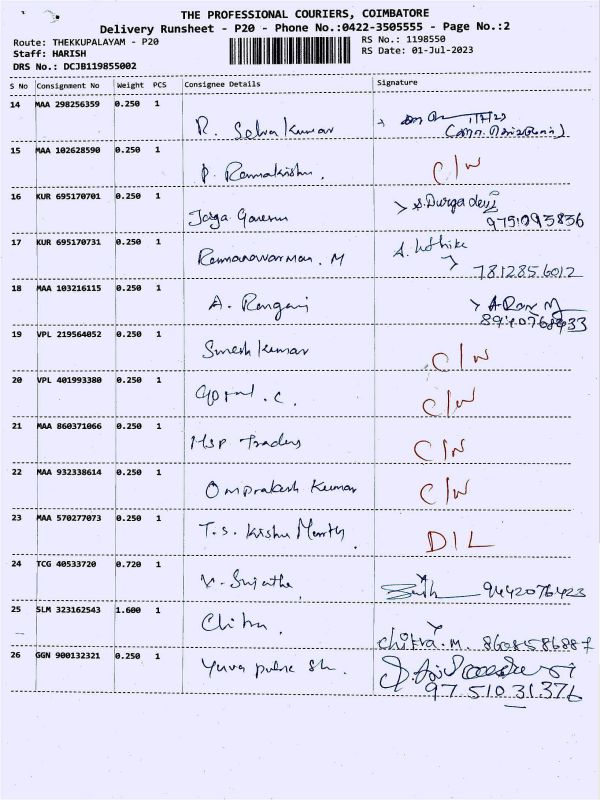 THE PROFESSIONAL COURIERS, COIMBATORE
Delivery Runsheet - P20 - Phone No.:0422-3505555 - Page No.:2
Route: THEKKUPALAYAM - P20
RS No.: 1198550
Staff: HARISH
RS Date: 01-Jul-2023
DRS No.: DCJB119855002
S No Consignment No Weight PCS Consignee Details Signature
14 MAA 298256359 0.250 1 R. Selva Kumar
15 MAA 102628590 0.250 1 P. Ramakrishn. C/W
16 KUR 695170701 0.250 1 S.Durga devi
9751093836
17 KUR 695170731 0.250 1 Ramanawarman. M
7812856012
18 MAA 103216115 0.250 1 A. Rangani
19 VPL 219564052 0.250 1 Suresh Kumar C/W
20 VPL 401993380 0.250 1 C/W
21 MAA 860371066 0.250 1 HSP Traders C/W
22 MAA 932338614 0.250 1 Omprakash Kumar C/W
23 MAA 570277073 0.250 1 T.S. Krishn Murthy DIL
24 TCG 40533720 0.720 1 K. Sujatha 9442076423
25 SLM 323162543 1.600 1 Chitra.
chitra.M. 8608586887
26 GGN 900132321 0.250 1 Yuva
9751031376